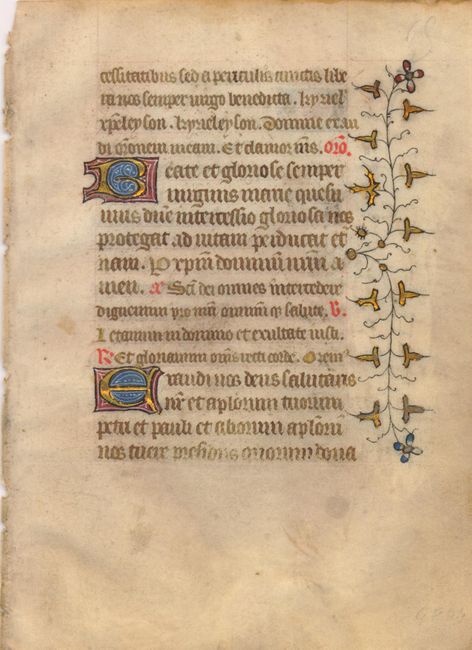 cessitatibus sed a periculis cunctis libe
ra nos semper uirgo benedicta. kyriel
xpeleyson. kyrieleyson. Domine exau
di oronem meam. Et clamor ms. oro.
Beate et gloriose semper
uirginis marie quesu
mus dne intercessio gloriosa nos
protegat ad uitam perducat et
nam. P xpm dominum nrm a
men. a Sci dei omnes intercedere
dignemini pro nra omnium q salute. V.
Letamini in domino et exultate iusti.
R Et gloriamini oms recti corde. Orem
Exaudi nos deus salutaris
nr et aplorum tuorum
petri et pauli et aliorum aplorum
nos tuere presidiis quorum dona